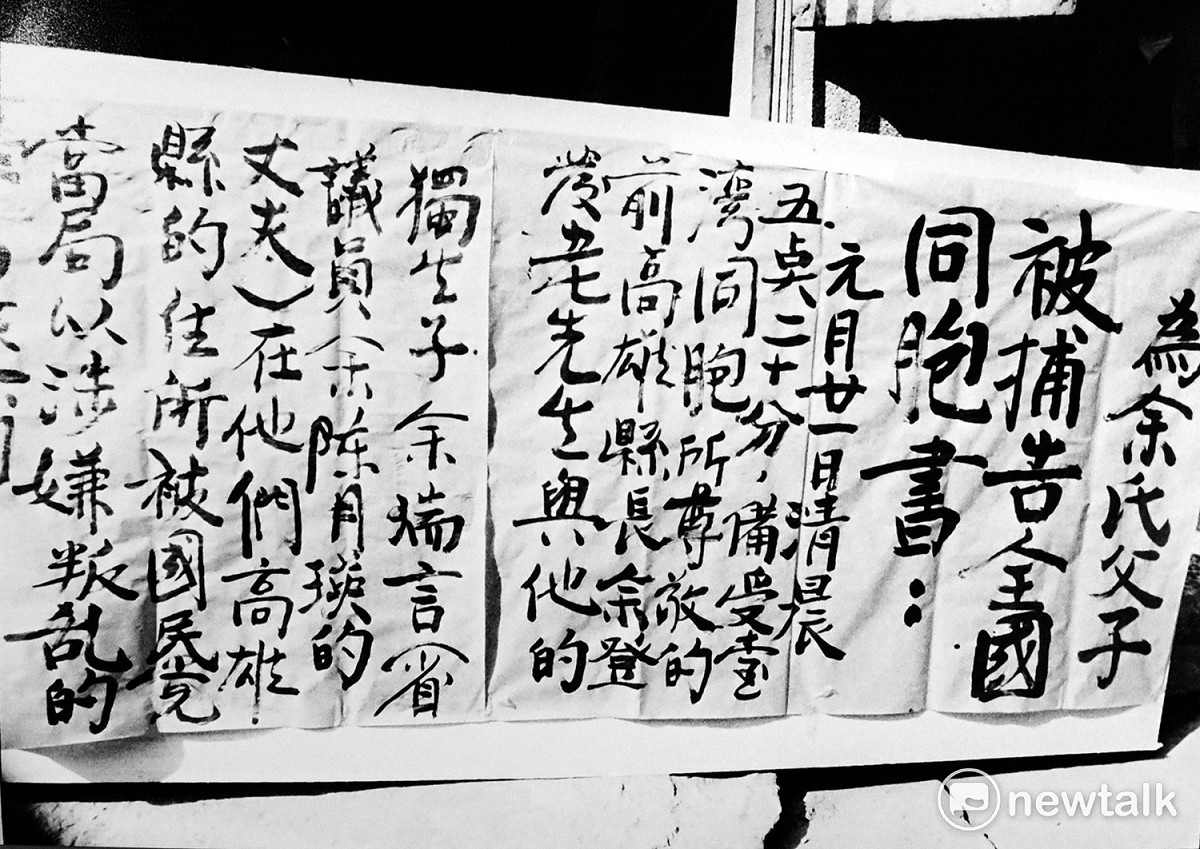 為余氏父子
被捕告全國
同胞書：
元月廿一日清晨
五点二十分，備受臺
湾同胞所尊敬的
前高雄縣長余登
發老先生與他的
獨生子余瑞言（省
議員余陈月瑛的
丈夫）在他們高雄
縣的住所被國民党
當局以涉嫌叛乱的
newtalk